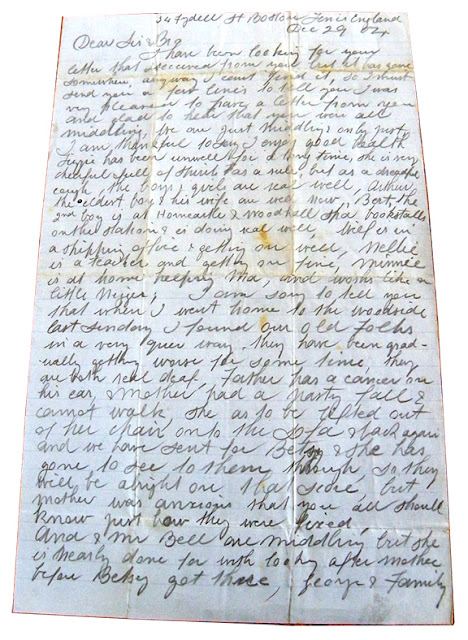 34 Fydell St Boston Lincs England
Dec 29 04
Dear Sis & Bro
I have been looking for your
letter that I received from you but it has gone
somewhere, anyway I cant find it, so I must
send you a few lines to tell you I was
very pleased to have a letter from you
and glad to hear that you were all
middling, We are just middling & only just,
I am thankful to say I enjoy good health
has been unwell for a long time, she is very
cheerful & full of as a rule, but as a dreadful
cough, the boys & girls are real well, Arthur
the eldest boy & his wife are well now, Bert, the
2nd boy is at Horncastle & Woodhall Spa bookstalls
on the stations & is doing real well, Wilf is in
a shipping office & getting on well, Nellie
is a teacher and getting on fine, Minnie
is at home helping Ma, and works like a
little Nigger, I am sorry to tell you
that when I went home to the woodside
last Sunday I found our old folks
in a very queer way they have been grad-
ually getting worse for some time, they
are both real deaf, Father has a cancer on
his ear, & Mother had a nasty fall &
cannot walk she as to be lifted out
of her chair onto the sofa & back again
and we have sent for Betsy & she has
gone to see to them through, so they
will be alright on that score, but
mother was anxious that you all should
know just how they were fixed,
And & Mr Bell are middling but she
is nearly done for with looking after mother
before Betsy got there, George & Family